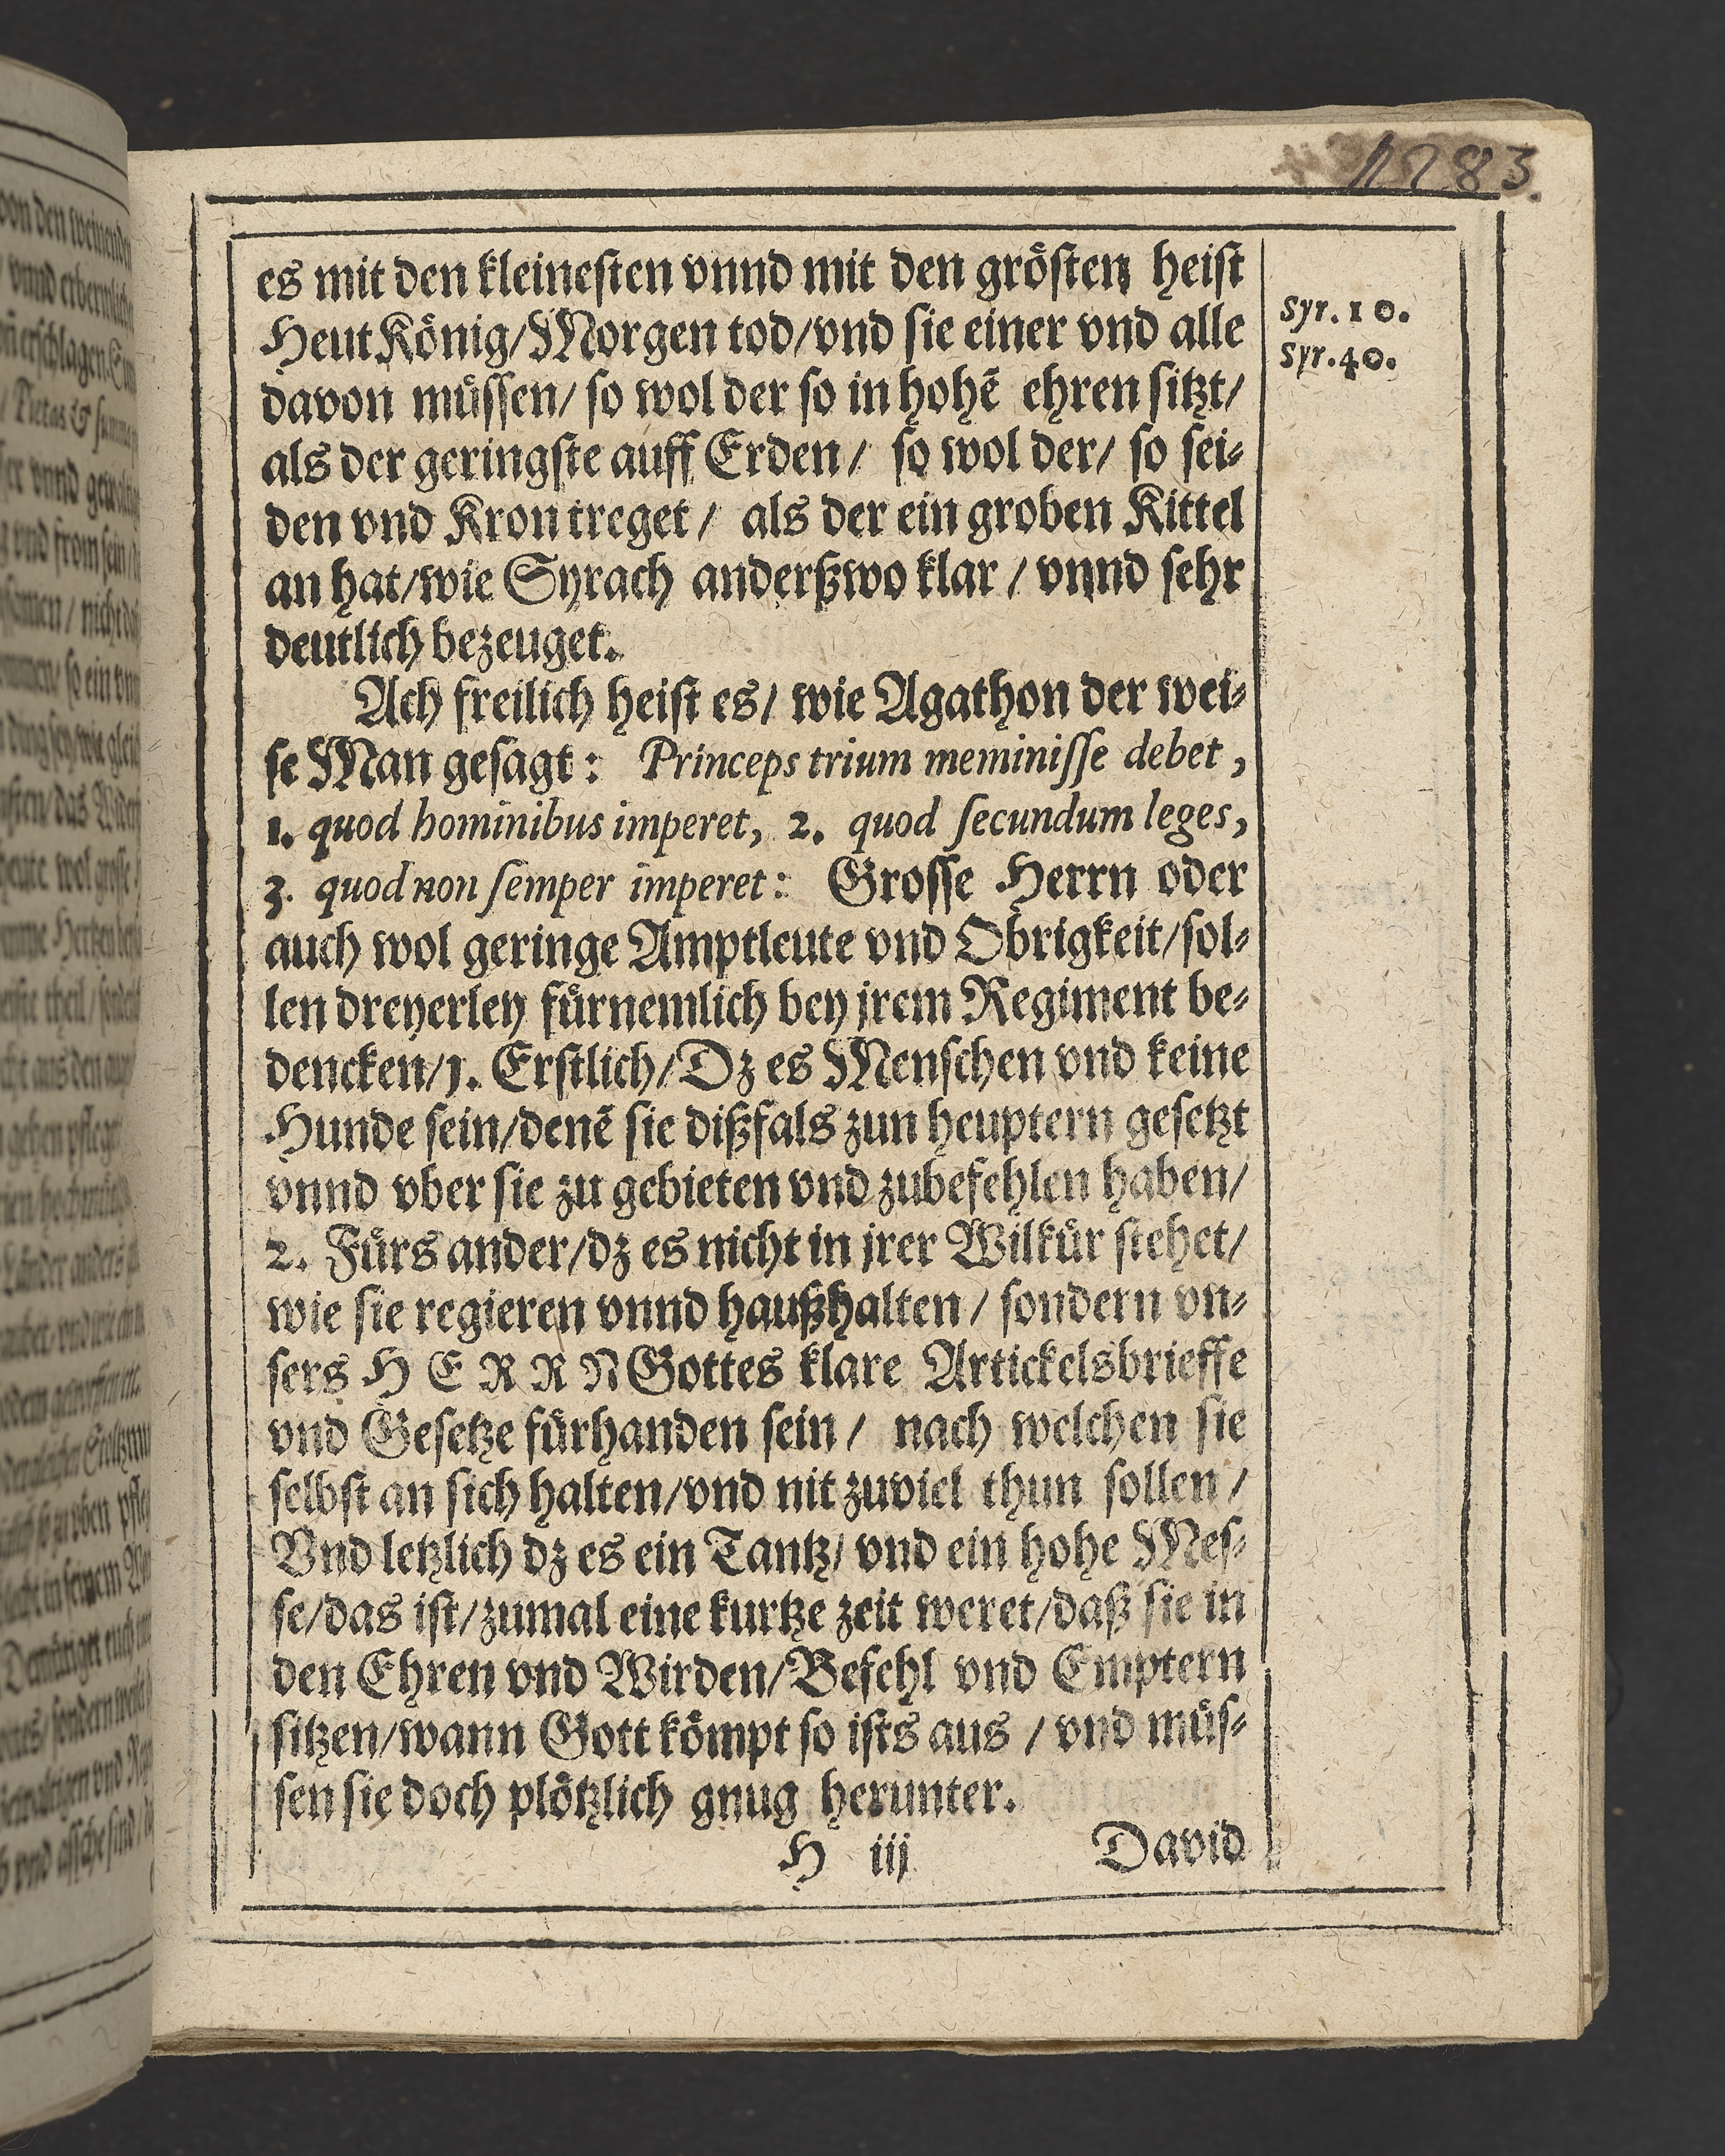 es mit den kleinesten vnnd mit den grösten heist
Heut König/Morgen tod/vnd sie einer vnd alle
davon müssen/ so wol der so in hohē ehren sitzt/
als der geringste auff Erden/ so wol der/ so sei-
den vnd Kron treget/ als der ein groben Kittel
an hat/wie Syrach anderßwo klar/ vnnd sehr
deutlich bezeuget.
Syr. 10.
Syr. 40.
Ach freilich heist es/ wie Agathon der wei-
se Man gesagt: Princeps trium meminisse debet,
1. quod hominibus imperet, 2. quod secundum leges,
3. quod non semper imperet: Grosse Herrn oder
auch wol geringe Amptleute vnd Obrigkeit/sol-
len dreyerley fürnemlich bey jrem Regiment be-
dencken/1. Erstlich/Dz es Menschen vnd keine
Hunde sein/denē sie dißfals zun heuptern gesetzt
vnnd vber sie zu gebieten vnd zubefehlen haben/
2. Fürs ander/dz es nicht in jrer Wilkür stehet/
wie sie regieren vnnd haußhalten/ sondern vn-
sers HERRN Gottes klare Artickelsbrieffe
vnd Gesetze fürhanden sein/ nach welchen sie
selbst an sich halten/vnd nit zuviel thun sollen/
Vnd letzlich dz es ein Tantz/ vnd ein hohe Mes-
se/das ist/zumal eine kurtze zeit weret/daß sie in
den Ehren vnd Wirden/Befehl vnd Emptern
sitzen/wann Gott kömpt so ists aus/ vnd müs-
sen sie doch plötzlich gnug herunter.
H iij David